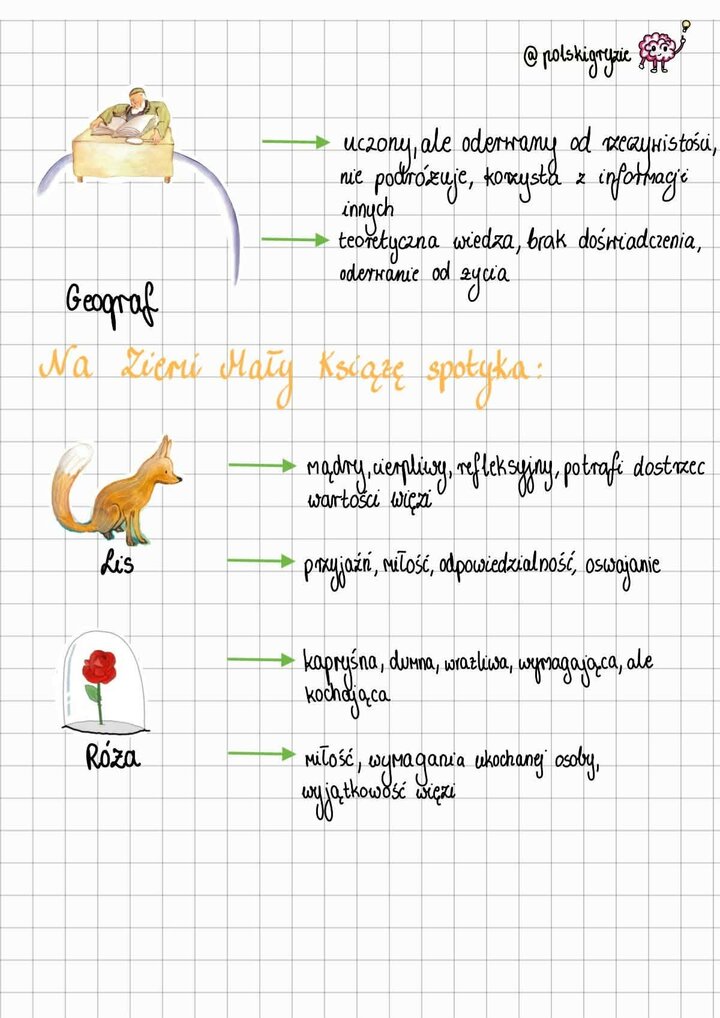 @polskigryzie
uczony, ale oderwany od rzeczywistości,
nie podróżuje, korzysta z informacji
innych
teoretyczna wiedza, brak doświadczenia,
oderwanie od życia
Geograf
Na Ziemi Mały Książę spotyka:
mądry, cierpliwy, refleksyjny, potrafi dostrzec
wartości więzi
Lis
przyjaźń, miłość, odpowiedzialność, oswajanie
kapryśna, dumna, wrażliwa, wymagająca, ale
kochająca
Róża
miłość, wymagania ukochanej osoby,
wyjątkowość więzi